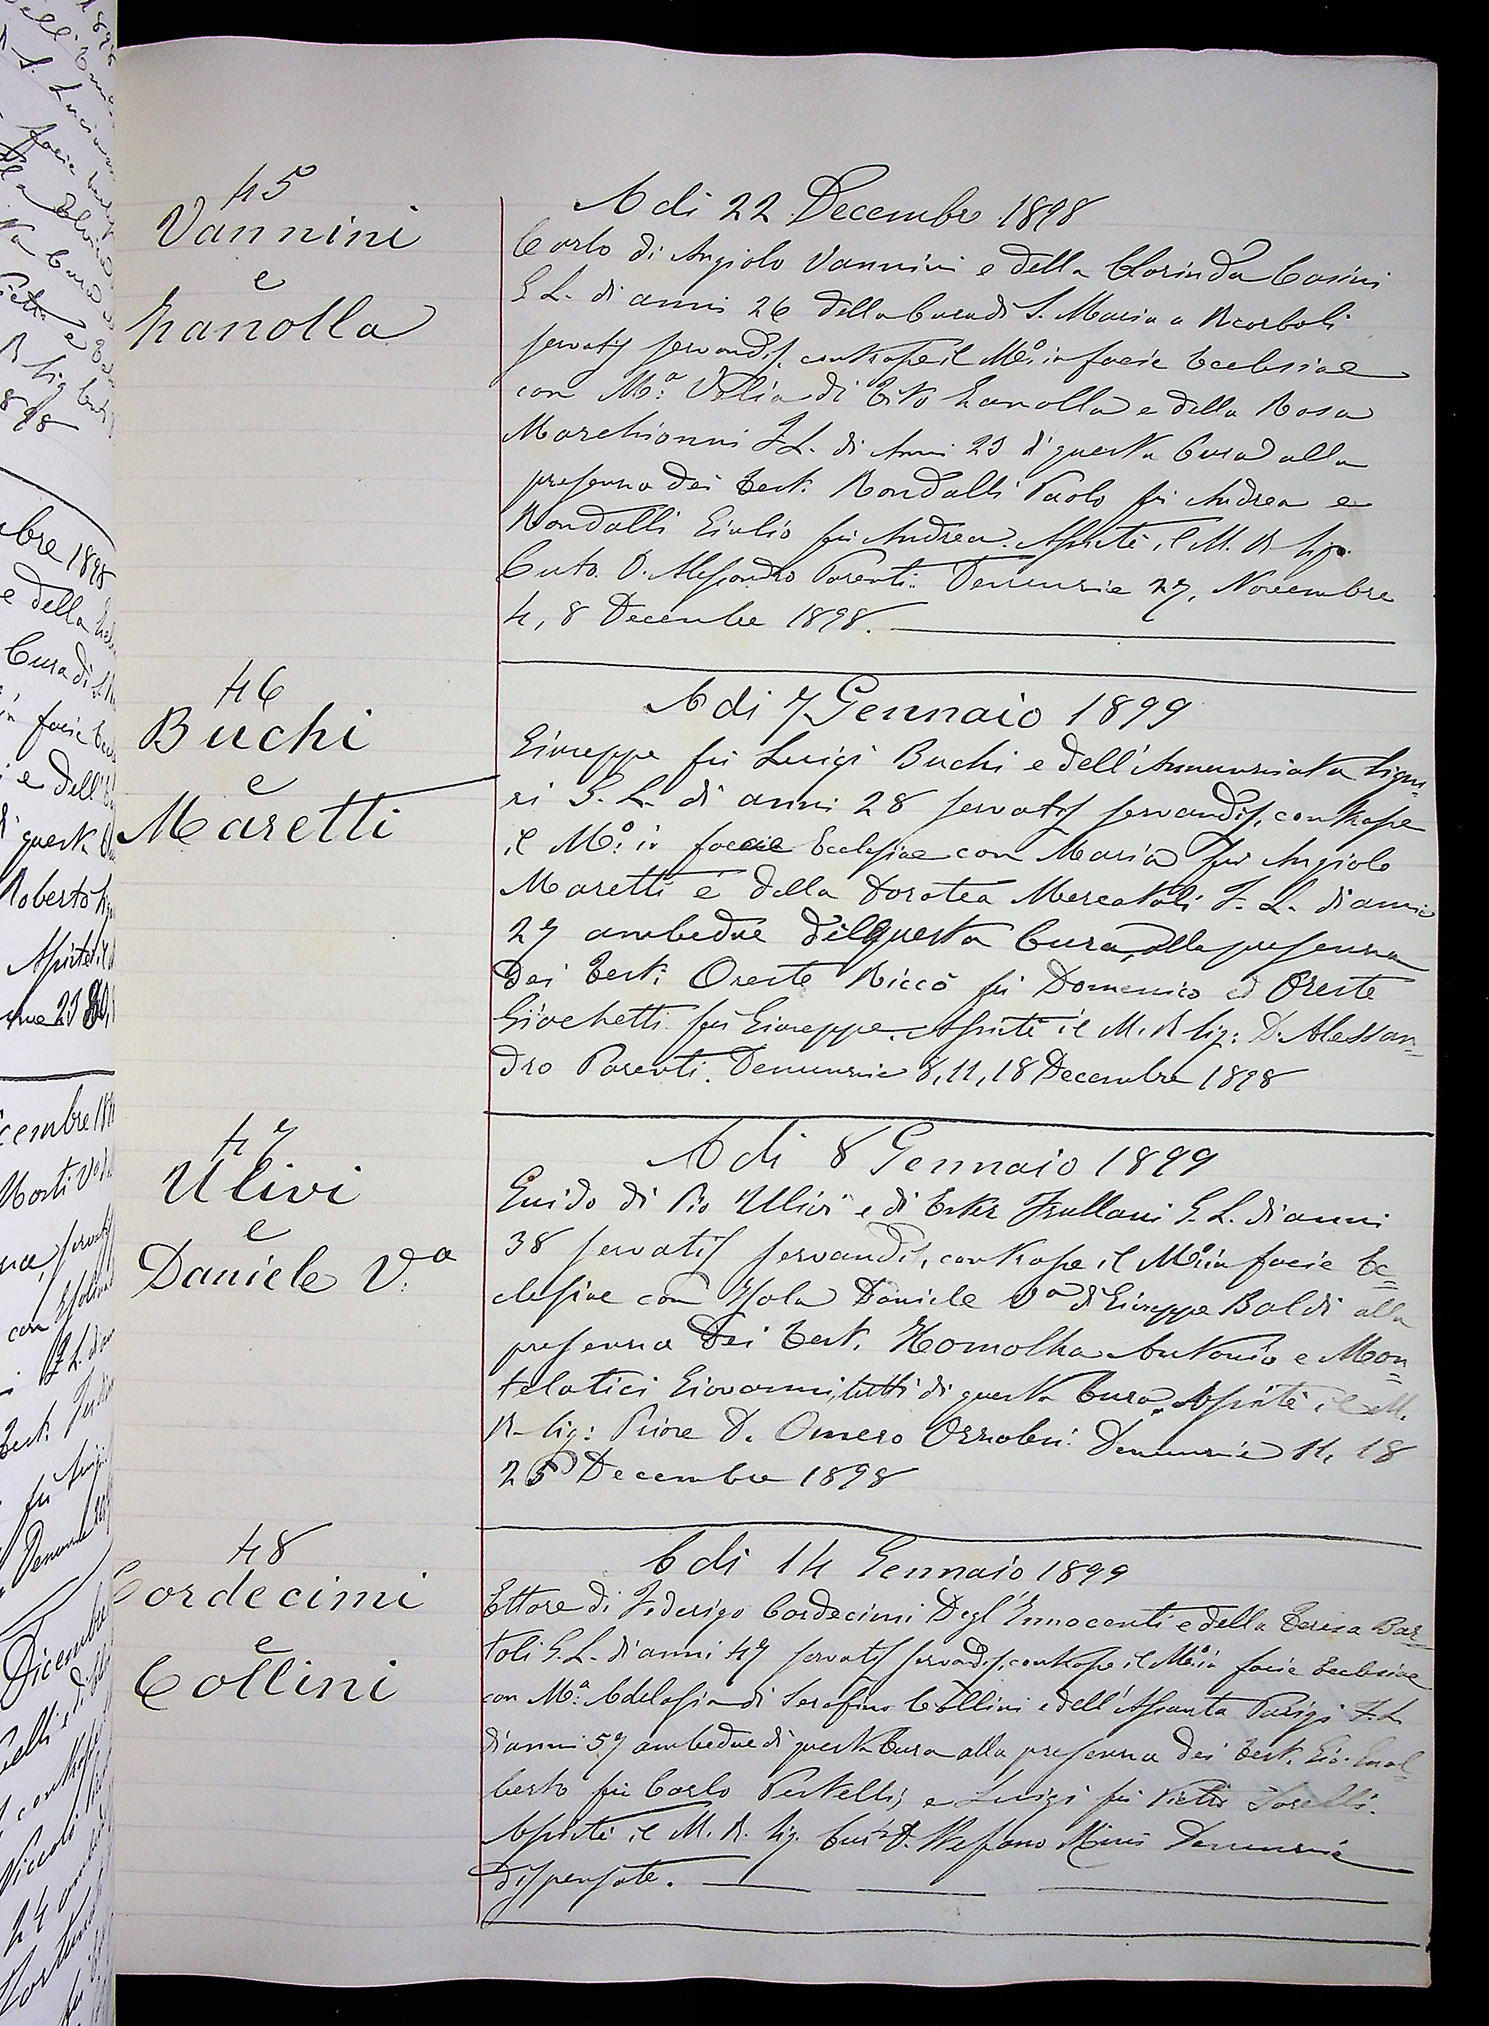 45
Vannini
e
Zanolla
A di 22 Decembre 1898
Carlo di Angiolo Vannini e della Clorinda Casini
G. L. di anni 26 della Cura di S. Maria a Ricorboli
servatis servandis, contrasse il Mo: in facie Ecclesiae
con Ma: Velia di Tito Zanolla e della Rosa
Marchionni F. L. di Anni 23 di questa Cura dalla
presenza dei Test: Rondalli Paolo fu Andrea e
Rondalli Giulio fu Andrea. Assistè il M. R. Sig.
Curto. D. Alessandro Parenti. Denunzie 27, Novembre
4, 8 Decembre 1898.
46
Buchi
e
Maretti
A di 7 Gennaio 1899
Giuseppe fu Luigi Buchi e dell'Annunziata Ligu-
ri G. L. di anni 28 servatis servandis, contrasse
il Mo: in facie Ecclesiae con Maria fu Angiolo
Maretti e della Dorotea Mercatali F. L. di anni
27 ambedue di questa Cura, alla presenza
dei Test: Oreste Riccò fu Domenico ed Oreste
Giachetti fu Giuseppe. Assistè il M. R. Sig: D. Alessan-
dro Parenti. Denunzie 8, 11, 18 Decembre 1898
47
Ulivi
e
Daniele Va
A di 8 Gennaio 1899
Guido di Pio Ulivi e di Ester Frullani G. L. di anni
38 servatis servandis, contrasse il Mo: in facie Ec-
clesiae con Isola Daniele Va di Giuseppe Baldi alla
presenza dei Test. Homolka Antonio e Mon-
telatici Giovanni, tutti di questa Cura. Assistè il M.
R. Sig: Priore D. Omero Denunzie 11, 18
25 Decembre 1898
48
Cordecimi
e
Collini
A di 14 Gennaio 1899
Ettore di Federigo Cordecimi Degl'Innocenti e della Teresa Bar-
toli G. L. di anni 47 servatis servandis, contrasse il Mo: in facie Ecclesiae
con Ma: Adelasia di Serafino Collini e dell'Assunta Parigi F. L.
di anni 57 ambedue di questa Cura alla presenza dei Test. Gio.
berto fu Carlo Pestelli, e Luigi fu Pietro Sorelli.
Assistè il M. R. Sig. D. Stefano Denunzie
dispensate.